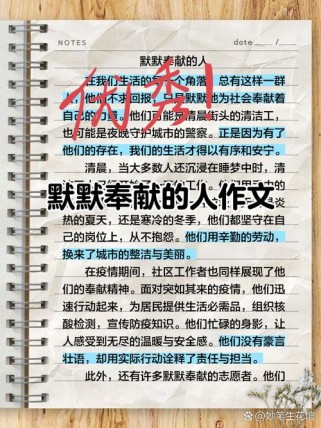 NOTES
date
默默奉献的人
在我们生活的每一个角落，总有这样一群
人，他们不求回报，默默地为社会奉献着
自己的力量。他们可能是清晨街头的清洁工，
也可能是夜晚守护城市的警察。正是因为有了
他们的存在，我们的生活才得以有序和安宁。
优秀！
清晨，当大多数人还沉浸在睡梦中时，清
默默奉献的人作文
热的夏天，还是寒冷的冬季，他们都坚守在自
己的岗位上，从不抱怨。他们用辛勤的劳动，
换来了城市的整洁与美丽。
在疫情期间，社区工作者也同样展现了他
们的奉献精神。面对突如其来的疫情，他们迅
速行动起来，为居民提供生活必需品，组织核
酸检测，宣传防疫知识。他们忙碌的身影，让
人感受到无尽的温暖与安全感。他们没有豪言
壮语，却用实际行动诠释了责任与担当。
此外，还有许多默默奉献的志愿者。他们
@妙笔生花馆